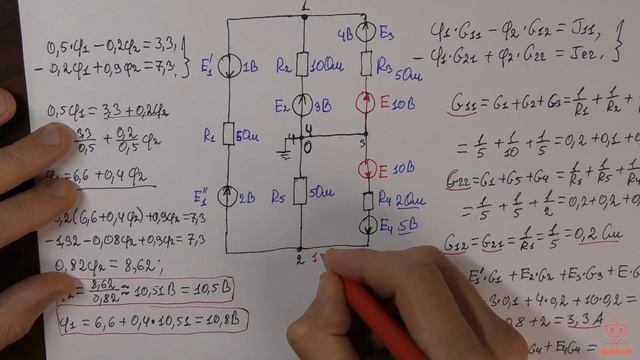 0,5φ1 - 0,2φ2 = 3,3,
- 0,2φ1 + 0,9φ2 = 7,3,
0,5φ1 = 3,3 + 0,2φ2
3,3/0,5 + 0,2/0,5 φ2
φ1 = 6,6 + 0,4φ2
0,2(6,6 + 0,4φ2) + 0,9φ2 = 7,3
- 1,32 - 0,08φ2 + 0,9φ2 = 7,3
0,82φ2 = 8,62;
= 8,62/0,82 ≈ 10,51В = 10,5В
φ1 = 6,6 + 0,4·10,51 = 10,8В
1
E1' 1В
R2 10Ом
4В E3
R3 5Ом
E2 9В
E 10В
R1 5Ом
4 4 0 3
E 10В
E1'' 2В
R5 5Ом
R4 2Ом
E4 5В
2 1
φ1·G11 - φ2·G12 = J11,
- φ1·G21 + φ2·G22 = J22,
G11 = G1 + G2 + G3 = 1/R1 + 1/R2 +
= 1/5 + 1/10 + 1/5 = 0,2 + 0,1 + 0
G22 = G1 + G5 + G4 = 1/R1 + 1/R5 + 1/R4
= 1/5 + 1/5 + 1/2 = 0,2 + 0,2 +
G12 = G21 = 1/R1 = 1/5 = 0,2 См
E1'·G1 + E2·G2 + E3·G3 + E·G
0,1 + 4·0,2 + 10·0,2 =
0,8 + 2 = 3,3 А
+ E4G4 =